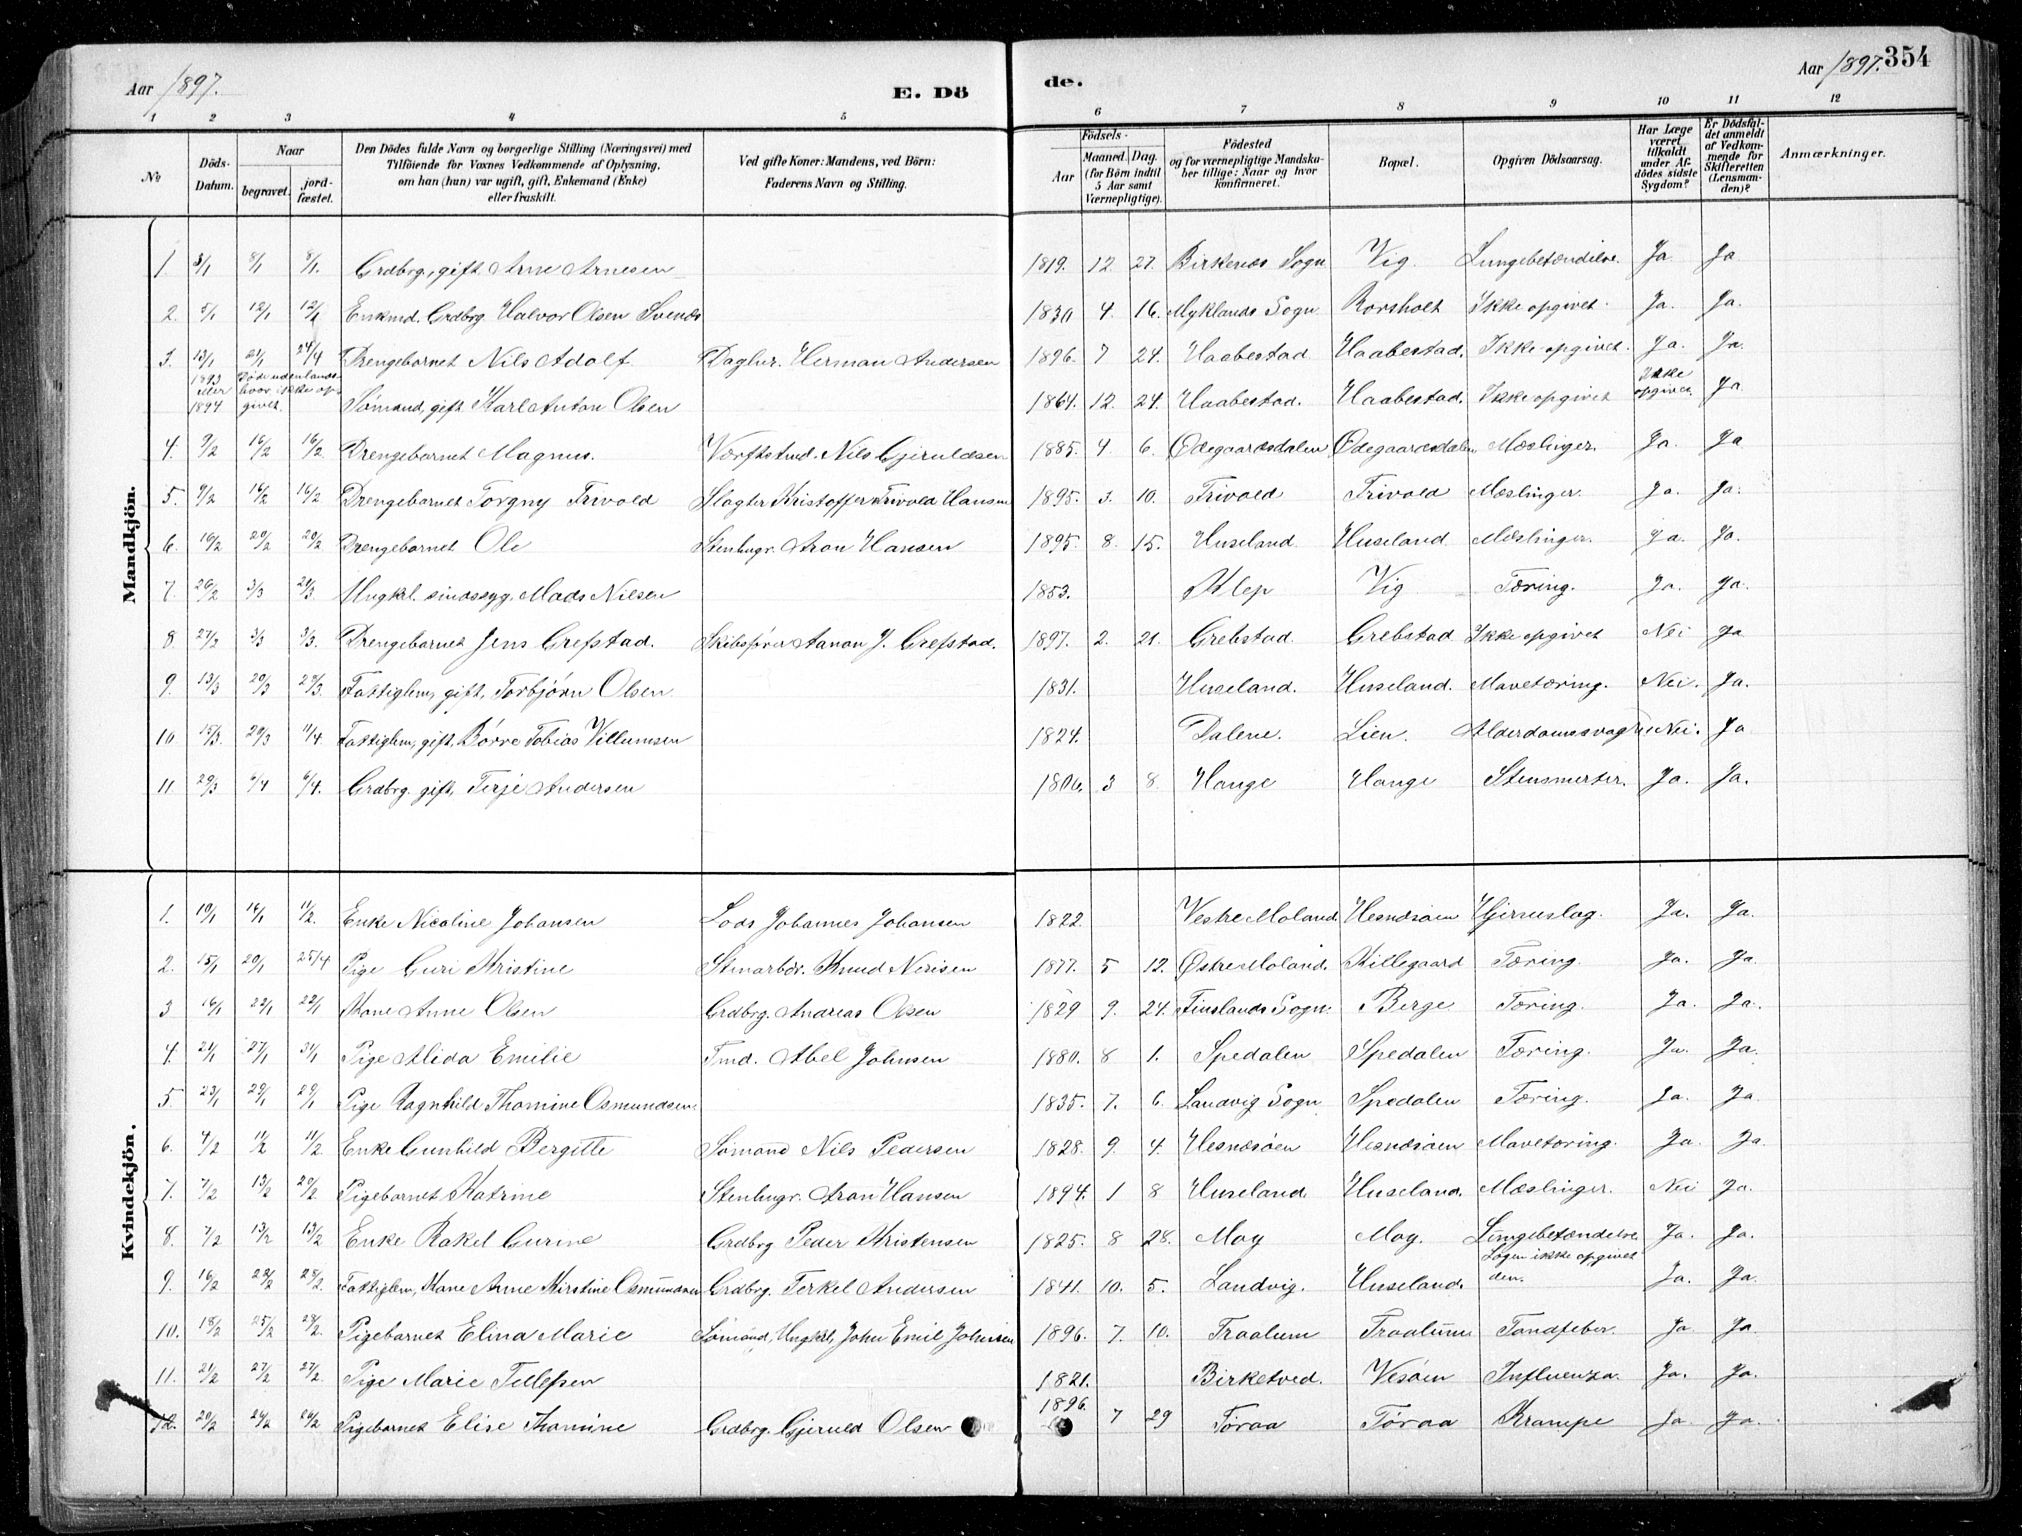 Aar 1897.
E. Dö
de.
Aar 1897. 354
1 2 3 4 5 6 7 8 9 10 11 12
No
Döds-Datum.
Naar
begravet. jordfæstet.
Den Dödes fulde Navn og borgerlige Stilling (Næringsvei) med
Tilföiende for Voxnes Vedkommende af Oplysning,
om han (hun) var ugift, gift, Enkemand (Enke)
eller fraskilt.
Ved gifte Koner: Mandens, ved Börn:
Faderens Navn og Stilling.
Födsels-
Aar Maaned. Dag.
(for Börn indtil
5 Aar samt
Værnepligtige).
Födested
og for værnepligtige Mandskaber tillige: Naar og hvor
konfirmeret.
Bopæl.
Opgiven Dödsaarsag.
Har Læge
været
tilkaldt
under Afdödes sidste
Sygdom?
Er Dödsfaldet anmeldt
af Vedkommende for
Skifteretten
(Lensmanden)?
Anmærkninger.
Mandkjön.
1. 3/1 8/1 8/1. Grdbrg, gift Arne Arnesen 1819. 12 27. Birkenes Sogn Vig. Lungebetændelse. Ja Ja
2. 5/1 12/1 12/1 Enkmd. Grdbrg. Halvor Olsen Svends 1830 4. 16. Myklands Sogn Rorsholt Ikke opgivet. Ja. Ja.
3. 13/1 21/1 24/4 Drengebarnet Nils Adolf. Daglnr. Herman Andersen 1896. 7 24. Haabestad Haabestad. Ikke opgivet. Ja. Ja.
1893 eller 1894 Död udenlands hvor ikke opgivet. Sømand, gift Karl Anton Olsen 1864. 12. 24. Haabestad. Haabestad. Ikke opgivet Ikke opgivet. Ja
4. 9/2 16/2 16/2 Drengebarnet Magnus. Værftstmd. Nils Gjeruldsen 1885. 4 6. Ødegaardsdalen Ødegaardsdalen Mæslinger. Ja. Ja
5. 9/2 16/2 16/2 Drengebarnet Torgny Trivold Slagter Kristoffer Trivold Hansen 1895. 3. 10. Trivold Trivold Mæslinger. Ja. Ja.
6. 16/2 20/2 20/2 Drengebarnet Ole Stenhugr. Aron Hansen 1895. 8. 15. Huseland Huseland Mæslinger. Ja. Ja.
7. 26/2 3/3 21/3 Ungkrl. sindssyg, Mads Nilsen 1853. Klep Vig Tæring. Ja. Ja.
8 27/2 3/3 3/3. Drengebarnet Jens Grefstad. Skibsfører Aanon J. Grefstad. 1897. 2. 21. Grebstad. Grebstad Ikke opgivet Nei Ja
9. 13/3 20/3 29/3. Fattiglm, gift, Torbjørn Olsen 1831. Huseland. Huseland. Mavetæring. Nei. Ja.
10 15/3. 20/3 11/4. Fattiglm, gift, Børre Tobias Villumsen 1824. Dalene. Lien. Alderdomssvaghe Nei. Ja
11. 29/3 6/4 6/4. Grdbrg. gift, Terje Andersen 1806. 3 8. Hauge Hauge Stensmerter. Ja. Ja.
Kvindekjön.
1. 10/1 16/1 11/2. Enke Nicoline Johansen Lods Johannes Johansen 1822. Vestre Moland. Hesnesøen Hjerneslag. Ja. Ja.
2. 15/1 20/1 25/4 Pige Guri Kristine Stenarbdr. Knud Nerisen 1877. 5 12. Østre Moland. Killegaard Tæring. Ja. Ja.
3 16/1 22/1 22/1 Kone Anne Olsen Grdbrg. Andreas Olsen 1829 9. 24. Finslands Sogn. Berge Tæring. Ja. Ja.
4. 21/1 27/1 31/1 Pige Alida Emilie Tmd. Abel Johnsen 1880. 8 1. Spedalen Spedalen Tæring. Ja. Ja.
5. 23/1 29/1 29/1 Pige Ragnhild Thomine Osmundsen. 1835. 7. 6. Landvig Sogn Spedalen Tæring. Ja. Ja
6. 4/2 11/2 11/2. Enke Gunhild Bergitte Sømand Nils Pedersen 1828. 9. 4. Hesnesøen Hesnesøen Mavetæring. Ja. Ja.
7. 7/2 13/2 20/2 Pigebarnet Katrine Stenhugr. Aron Hansen 1894. 1 8 Huseland. Huseland. Mæslinger. Nei Ja.
8. 7/2 13/2 13/2 Enke Rakel Gurine Grdbrg Peder Kristensen 1825. 8 28. Moy Moy. Lungebetændelse Ja. Ja.
9. 16/2 22/2 28/2. Fattiglem, Kone Anne Kirstine Osmundsen Grdbrg. Terkel Andersen 1841. 10. 5. Landvig. Huseland. Lægen ikke opgivet den. Ja. Ja.
10. 18/2 25/2 28/2. Pigebarnet Elina Marie Sømand, Ungkrl, John Emil Johnsen 1896. 7. 10. Traalum Traalum Tandfeber. Ja Ja
11. 21/2 27/2 27/2. Pige Marie Tellefsen 1821. Birketved. Vesøen Influenza. Ja. Ja.
12. 20/2 26/2 26/2 Pigebarnet Elise Thomine Grdbrg. Gjeruld Olsen 1896. 7 29 Tøraa Tøraa Krampe Ja. Ja.